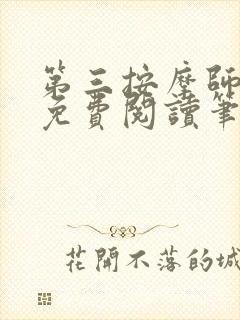 第三按摩師
免費閱讀筆
花開不落的城